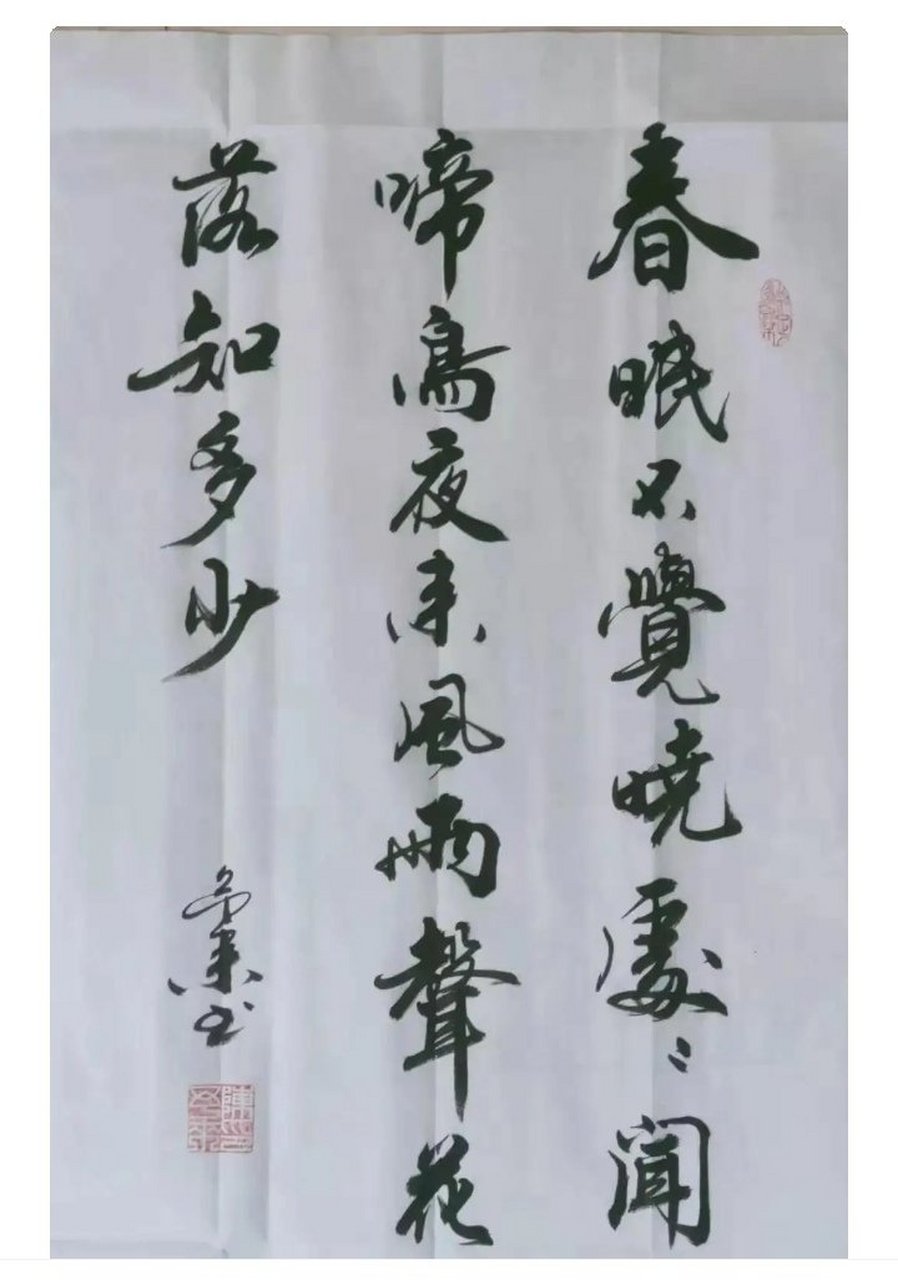 春眠不覺曉處〻聞
啼鳥夜来風雨聲花
落知多少